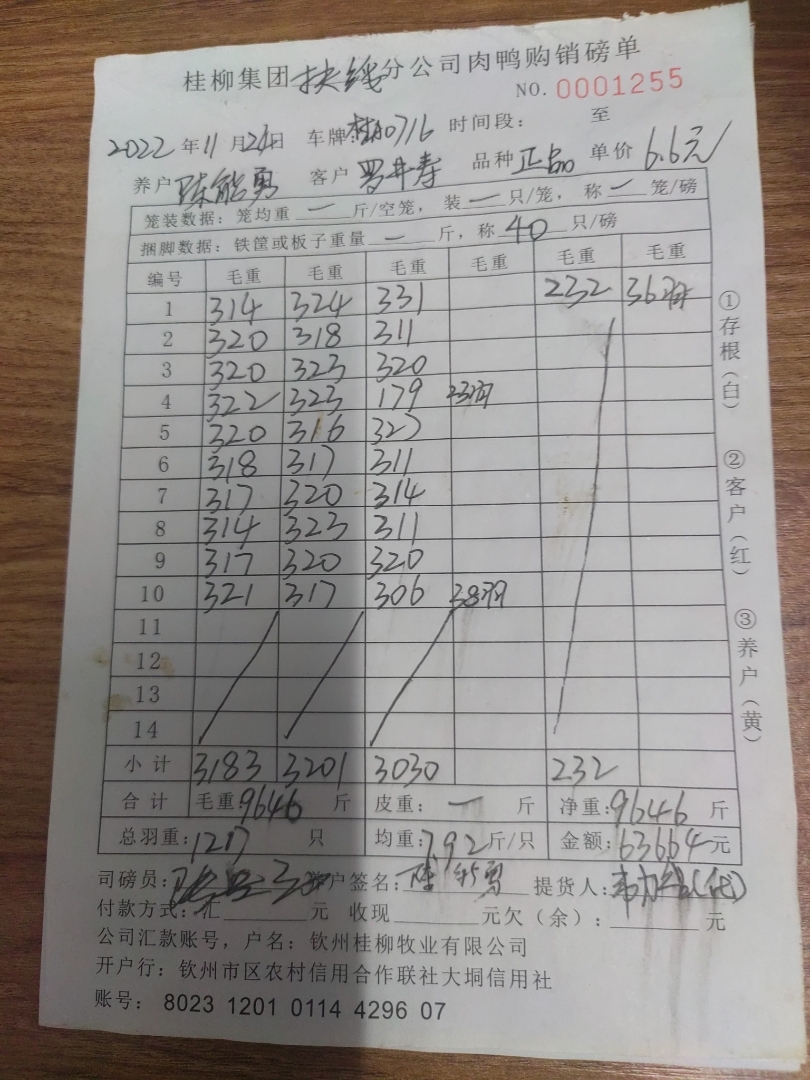 桂柳集团扶绥分公司肉鸭购销磅单
NO. 0001255
2022年11月24日 车牌:桂A0716 时间段: 至
养户 陈能勇 客户 罗井寿 品种 正品 单价 6.6元
笼装数据:笼均重 一 斤/空笼,装 一 只/笼,称 一 笼/磅
捆脚数据:铁筐或板子重量 一 斤,称 40 只/磅
编号 毛重 毛重 毛重 毛重 毛重 毛重
1 314 324 331 232 36羽
2 320 318 311
3 320 323 320
4 322 323 179 23羽
5 320 316 327
6 318 317 311
7 317 320 314
8 314 323 311
9 317 320 320
10 321 317 306 38羽
11
12
13
14
小计 3183 3201 3030 232
合计 毛重:9646 斤 皮重: 一 斤 净重:9646 斤
总羽重:1217 只 均重:7.92 斤/只 金额:63664 元
司磅员: 养户签名:陈能勇 提货人:
付款方式:汇 元 收现 元欠(余): 元
公司汇款账号,户名:钦州桂柳牧业有限公司
开户行:钦州市区农村信用合作联社大垌信用社
账号: 8023 1201 0114 4296 07
①存根(白)
②客户(红)
③养户(黄)